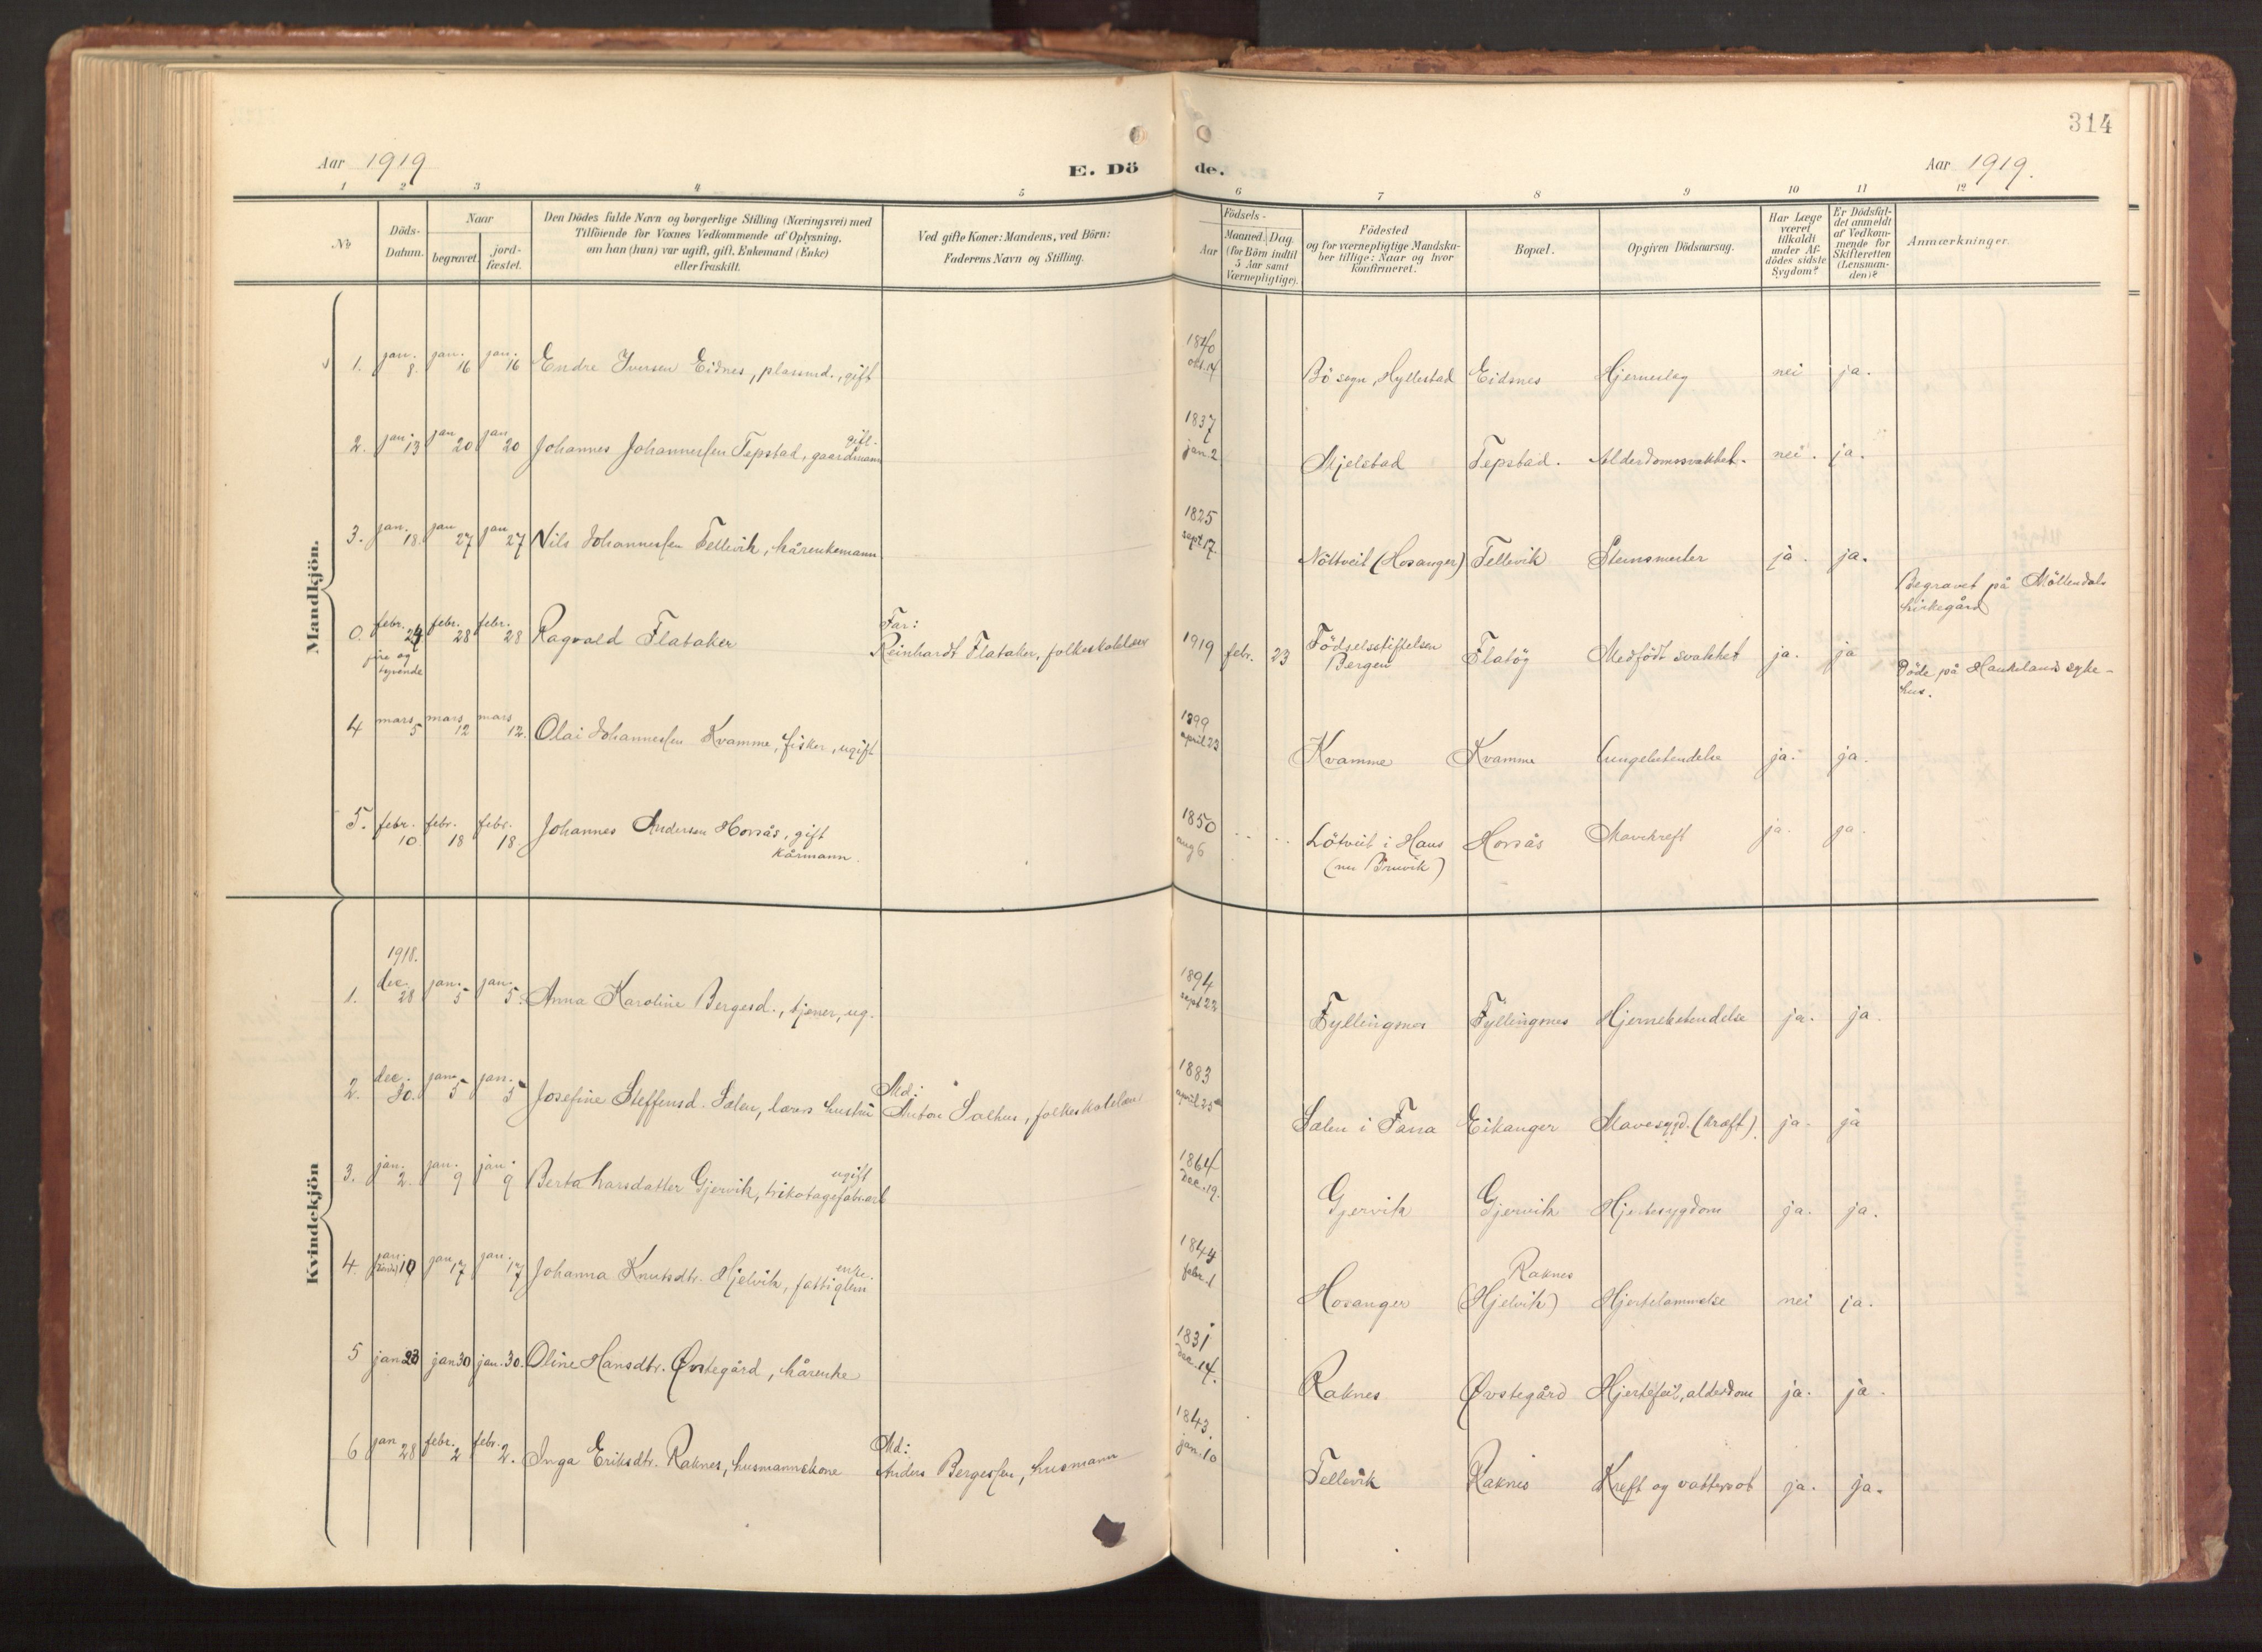 314
Aar 1919
E. Dö de.
Aar 1919.
1 2 3 4 5 6 7 8 9 10 11 12
No
Döds-Datum.
Naar
begravet.
jord-fæstet.
Den Dödes fulde Navn og borgerlige Stilling (Næringsvei) med
Tilföiende for Voxnes Vedkommende af Oplysning,
om han (hun) var ugift, gift, Enkemand (Enke)
eller fraskilt.
Ved gifte Koner: Mandens, ved Börn:
Faderens Navn og Stilling.
Födsels-
Aar
Maaned. Dag
(for Börn indtil
5 Aar samt
Værnepligtige).
Födested
og for værnepligtige Mandska-
ber tillige: Naar og hvor
konfirmeret.
Bopæl.
Opgiven Dödsaarsag.
Har Læge
været
tilkaldt
under Af-
dödes sidste
Sygdom?
Er Dödsfal-
det anmeldt
af Vedkom-
mende for
Skifteretten
(Lensman-
den)?
Anmærkninger.
Mandkjön.
1. jan. 8. jan. 16 jan. 16 Endre Iversen Eidnes, plassmd., gift 1840 okt. 14 Bö sogn, Hyllestad Eidsnes Hjerneslag nei ja.
2. jan 13 jan 20 jan 20 Johannes Johannessen Tepstad, gaardmann gift. 1837 jan. 2 Mjelstad Tepstad. Alderdomssvakhet. nei. ja.
3. jan. 18. jan 27 jan 27 Nils Johannessen Tellevik, kårenkemann 1825 sept. 17. Nöttveit (Hosanger) Tellevik Steinsmerter ja. ja.
0. febr. 24 fire og tyvende febr. 28 febr. 28 Ragvald Flataker Far: Reinhardt Flataker, folkeskolelærer 1919 febr. 23 Födselsstiftelsen Bergen Flatøy Medfödt svakhet ja. ja Begravet på Möllendals kirkegård
4 mars 5 mars 12 mars 12. Olai Johannessen Kvamme, fisker, ugift 1899 april 23 Kvamme Kvamme Lungebetendelse ja. ja. Döde på Haukeland syke-hus.
5. febr. 10 febr. 18 febr. 18 Johannes Andersen Horsås, gift kårmann. 1850 aug 6 Lötveit i Haus (nu Bruvik) Horsås Mavekreft ja. ja.
Kvindekjön
1. 1918. dec. 28 jan. 5 jan. 5. Anna Karoline Bergesd., tjener, ug. 1894 sept 22 Fyllingsnes Fyllingsnes Hjernebetendelse ja. ja.
2. dec. 30. jan. 5 jan. 5 Josefine Steffensd. Sælen, lærers hustru Md: Anton Salhus, folkeskolelærer 1883 april 25 Sælen i Fana Eikanger Mavesygd. (kræft). ja. ja
3. jan. 2. jan. 9 jan. 9 Berta Larsdatter Gjervik, trikotagefabr.arb ugift 1864 dec. 19. Gjervik Gjervik Hjertesygdom ja. ja.
4. jan. 10 jan 17 jan. 17 Johanna Knutsdtr. Hjelvik, fattiglem enke. 1844 febr. 1 Hosanger Raknes (Hjelvik) Hjertelammelse nei ja.
5 jan 23 jan 30 jan. 30. Oline Hansdtr. Øvstegård, kårenke 1831 dec. 14. Raknes Øvstegård Hjertefeil, alderdom ja. ja.
6 jan 28 febr. 2 febr. 2. Inga Eriksdtr. Raknes, husmannskone Md: Anders Bergessen, husmann 1843. jan. 10 Tellevik Raknes Kreft og vattersot ja. ja.